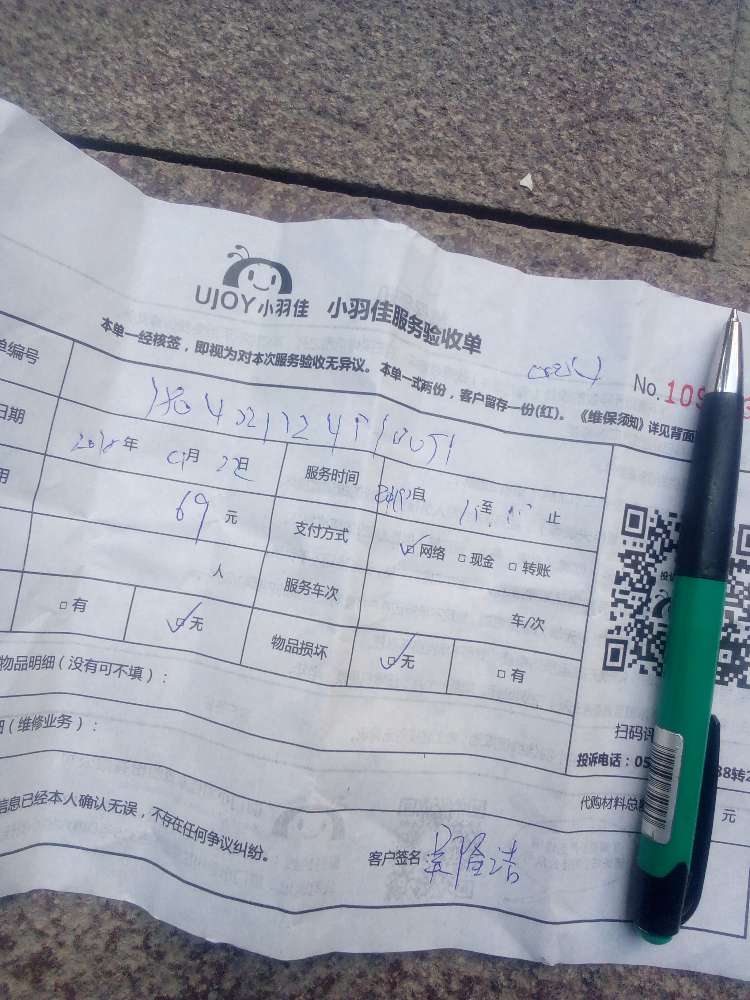 UJOY小羽佳 小羽佳服务验收单
本单一经核签，即视为对本次服务验收无异议。本单一式两份，客户留存一份(红)。《维保须知》详见背面
No. 109
单编号
日期 2018年 月 日 服务时间 自 至 止
用 69 元 支付方式 网络 现金 转账
人 服务车次 车/次
有 无 物品损坏 无 有
物品明细（没有可不填）：
（维修业务）：
扫码评
投诉电话：05 88转2
代购材料总 元
信息已经本人确认无误，不存在任何争议纠纷。
客户签名